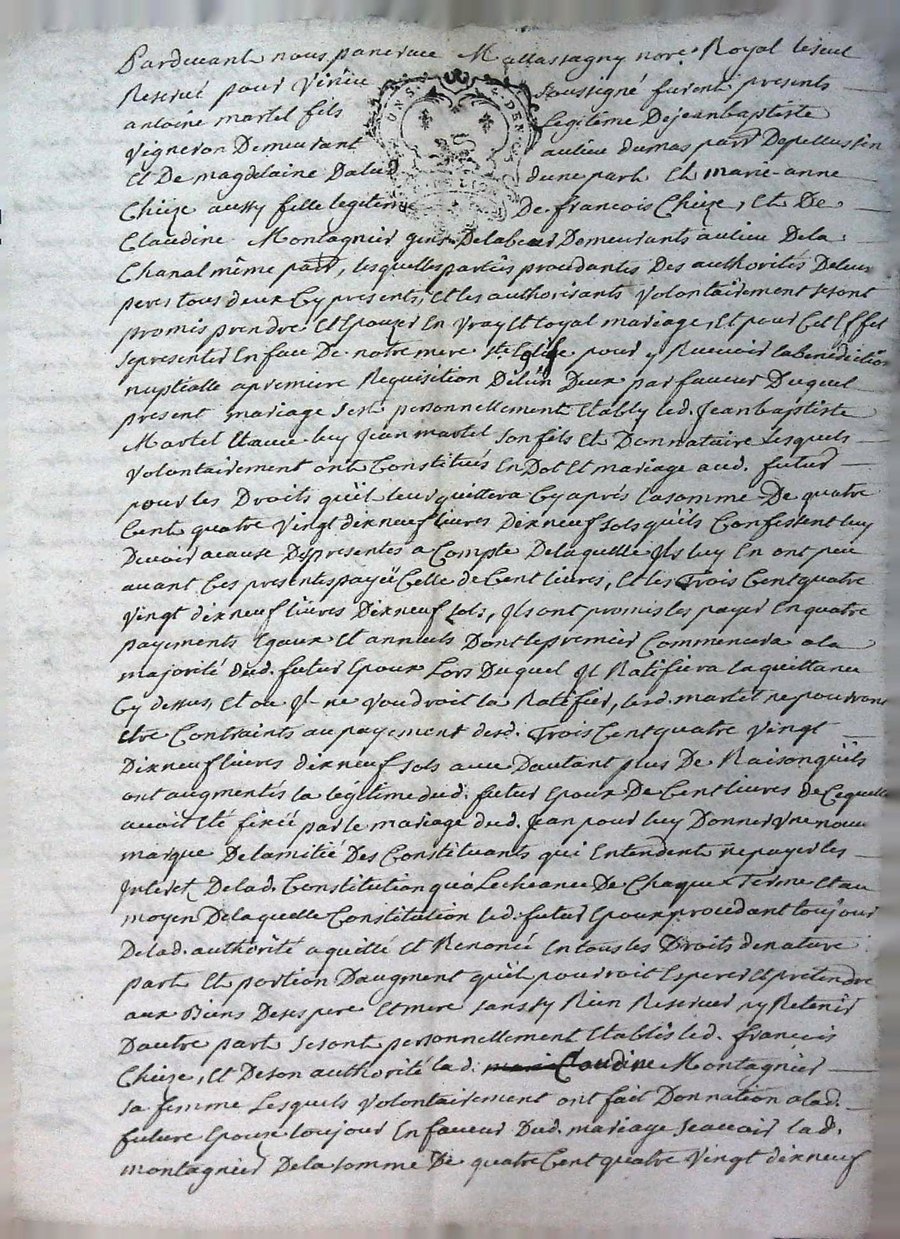 Pardevant nous pancrace Mallassagny nore. Royal le seul
Reservé pour Virieu soussigné furent presents
antoine martel fils legitime De jean baptiste
vigneron Demeurant au lieu dumas parr. Depellussin
et De magdelaine Dalud dune part Et marie-anne
Chieze aussy fille legitime De francois Chieze, Et De
Claudine Montagnier gens Delabeur Demeurants au lieu Dela
Chanal même parr, lesquelles parties procedantes Des authorités Deleur
peres tous deux Cy presents, Et les authorisants volontairement se sont
promis prendre Et Epouzer En vray Et loyal mariage, Et pour Cet Effet
se presenter En face De notre mere ste. Eglise pour y Recevoir la benediction
nuptialle a premiere Requisition De lun Deux par faveur Duquel
present mariage sest personnellement Etably led. Jean baptiste
Martel Et avec luy Jean martel son fils Et Donnataire Lesquels
volontairement ont Constitués En Dot Et mariage aud. futur
pour les Droits quil leur quittera Cy aprés la somme De quatre
Cent quatre vingt dix neuf livres Dix neuf sols quils Confessent luy
Devoir a cause Des presentes a Compte De laquelle Ils luy En ont peu
avant Ces presentes payé Celle de Cent livres, Et les Trois Cent quatre
vingt dix neuf livres Dix neuf sols, Ils ont promis les payer En quatre
payements Egaux Et annuels Dont le premier Commencera a la
majorité dud. futur Epoux Lors Duquel Il Ratifiera la quittance
Cy dessus, Et ou Il ne voudroit la Ratifier, lesd. martel ne pourront
etre Contraints au payement desd. Trois Cent quatre vingt
Dix neuf livres dix neuf sols avec Dautant plus De Raison quils
ont augmentés la legitime dud. futur Epoux De Cent livres de Ce quelle
avoit été fixée par le mariage dud. Jean pour luy Donner vne nouv
marque De lamitié Des Constituants qui Entendent ne payer les
Interet Delad. Constitution qua Lecheance De Chaque Terme Et au
moyen Delaquelle Constitution led. futur Epoux procedant toujour
Delad. authorité a quitté Et Renoncé En tous les Droits de nature
part Et portion Daugment quil pourroit Esperer Et pretendre
aux Biens Deses pere Et mere sans sy Rien Reserver ny Retenir
Dautre part se sont personnellement Etablis led. francois
Chieze, Et De son authorité lad. Claudine Montagnier
sa femme Lesquels volontairement ont fait Donnation a lad.
future Epoux toujour En faveur Dud. mariage scavoir lad.
montagnier De la somme De quatre Cent quatre vingt dix neuf